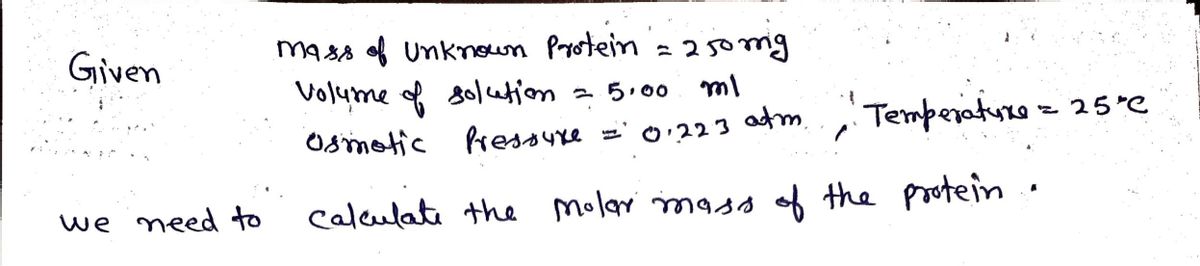 Given
mass of Unknown Protein = 250 mg
Volume of solution = 5.00 ml
Osmotic Pressure = 0.223 atm , Temperature = 25°C
we need to calculate the molar mass of the protein .